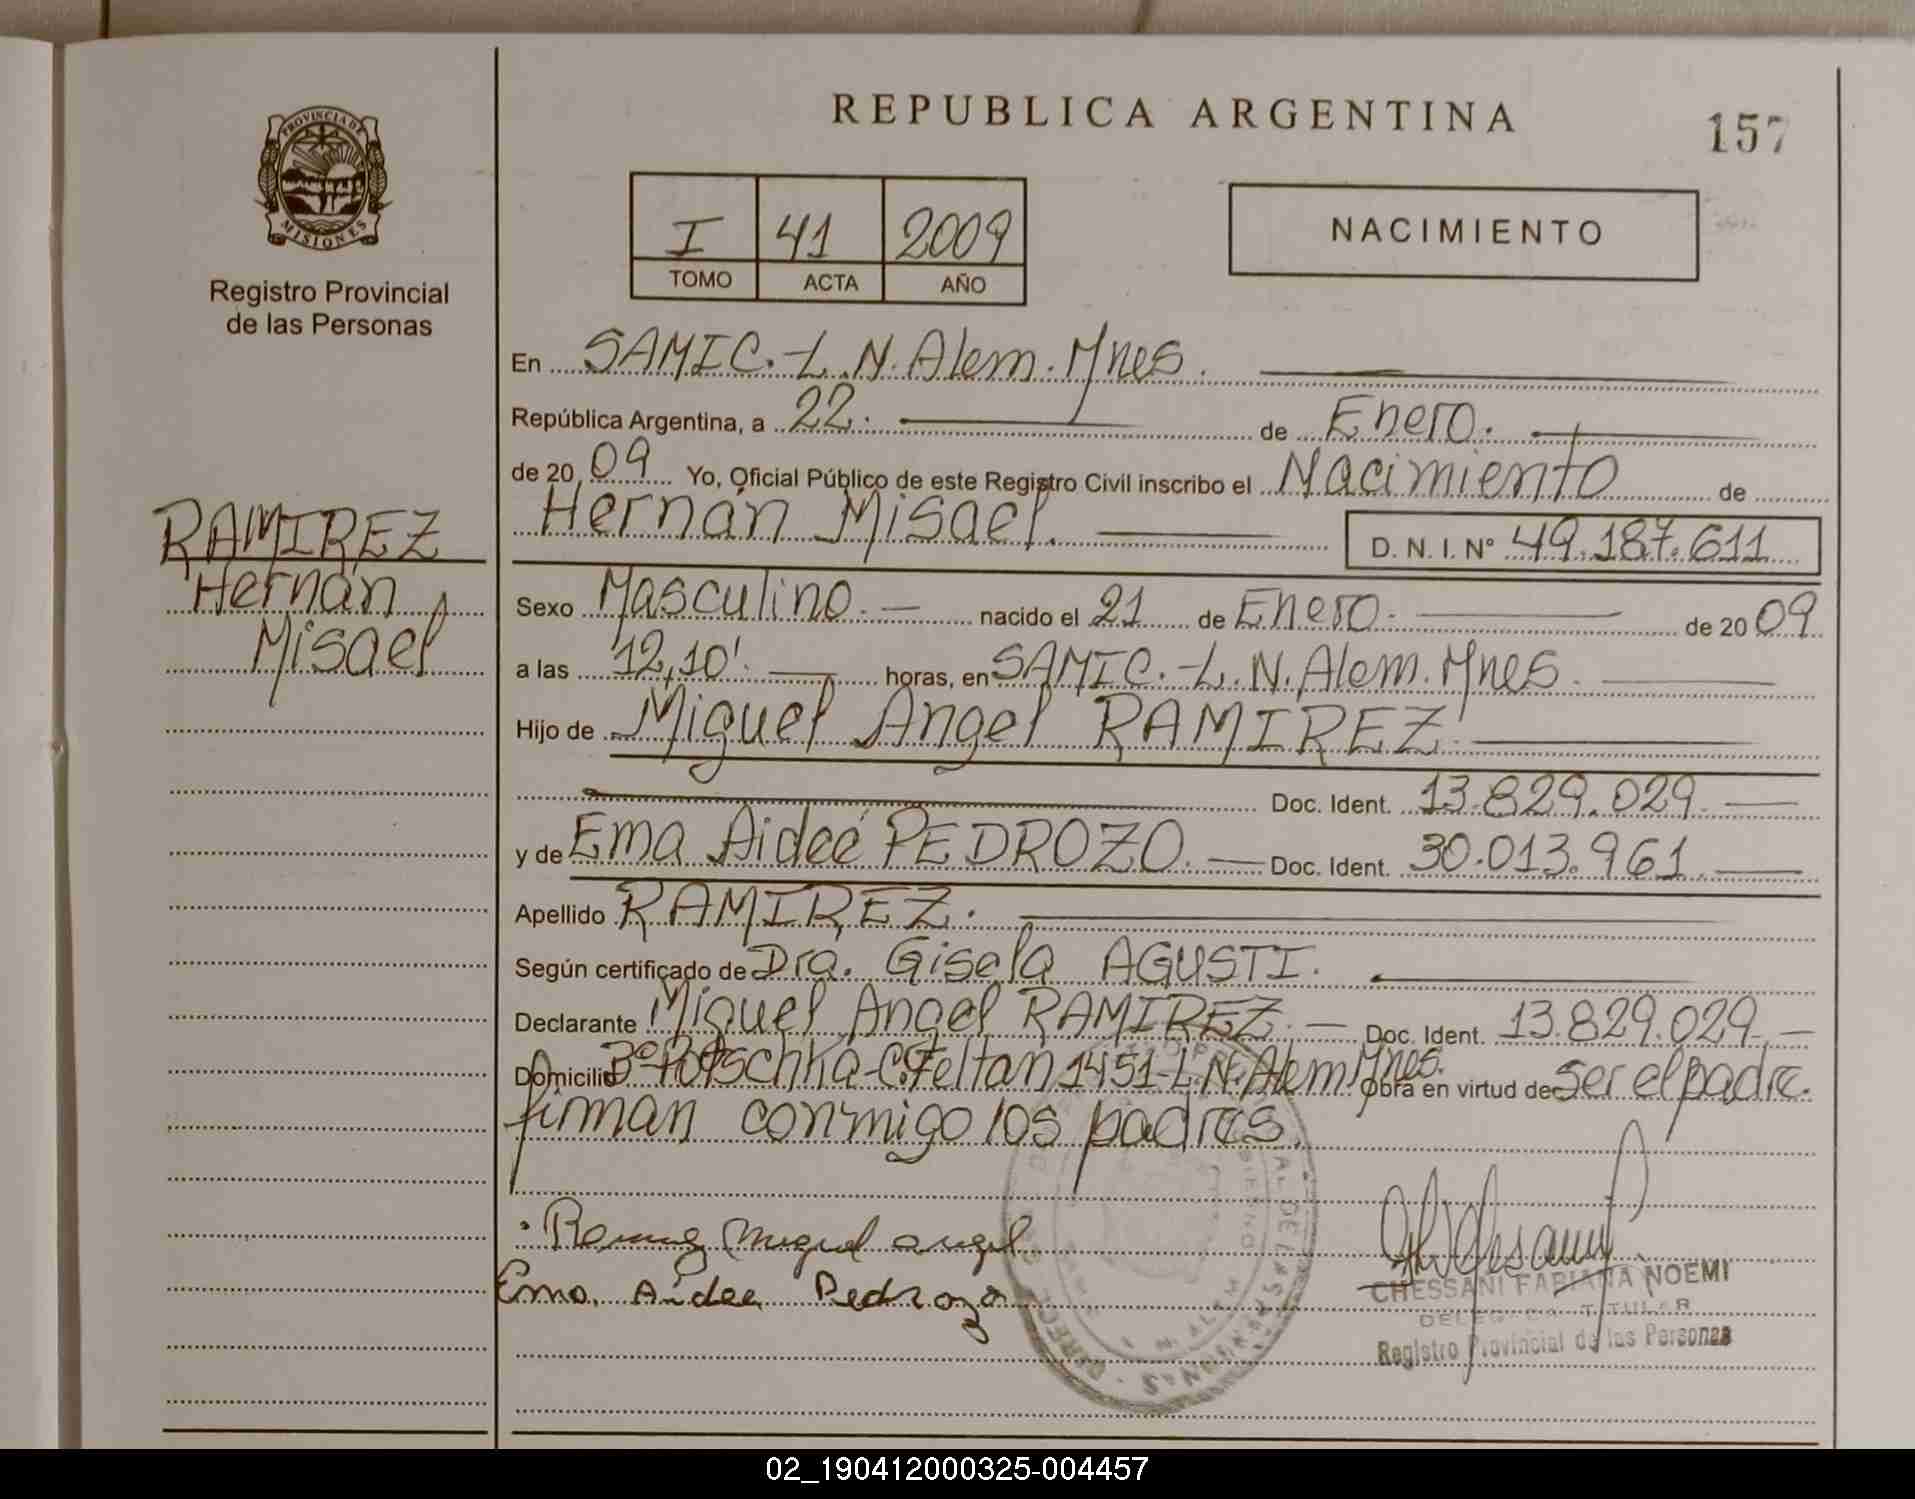 REPUBLICA ARGENTINA
157
PROVINCIA DE
MISIONES
Registro Provincial
de las Personas
I 41 2009
TOMO ACTA AÑO
NACIMIENTO
En SAMIC.-L.N.Alem.Mnes.
República Argentina, a 22. de Enero.
de 20 09 Yo, Oficial Público de este Registro Civil inscribo el Nacimiento de
Hernán Misael. D. N. I. N° 49.187.611
RAMIREZ
Hernán
Misael
Sexo Masculino. nacido el 21 de Enero. de 20 09
a las 12,10'. horas, en SAMIC.-L.N.Alem.Mnes.
Hijo de Miguel Angel RAMIREZ.
Doc. Ident. 13.829.029.
y de Ema Aideé PEDROZO. Doc. Ident. 30.013.961.
Apellido RAMIREZ.
Según certificado de Dra. Gisela AGUSTI.
Declarante Miguel Angel RAMIREZ. Doc. Ident. 13.829.029.
Domicilio B° Potschka-C.Feltan 1451-L.N.Alem Mnes. Obra en virtud de ser el padre.
firman conmigo los padres.
Miguel angel
Ema. Aidee Pedrozo
CHESSANI FABIANA NOEMI
DELEGADA TITULAR
Registro Provincial de las Personas
02_190412000325-004457